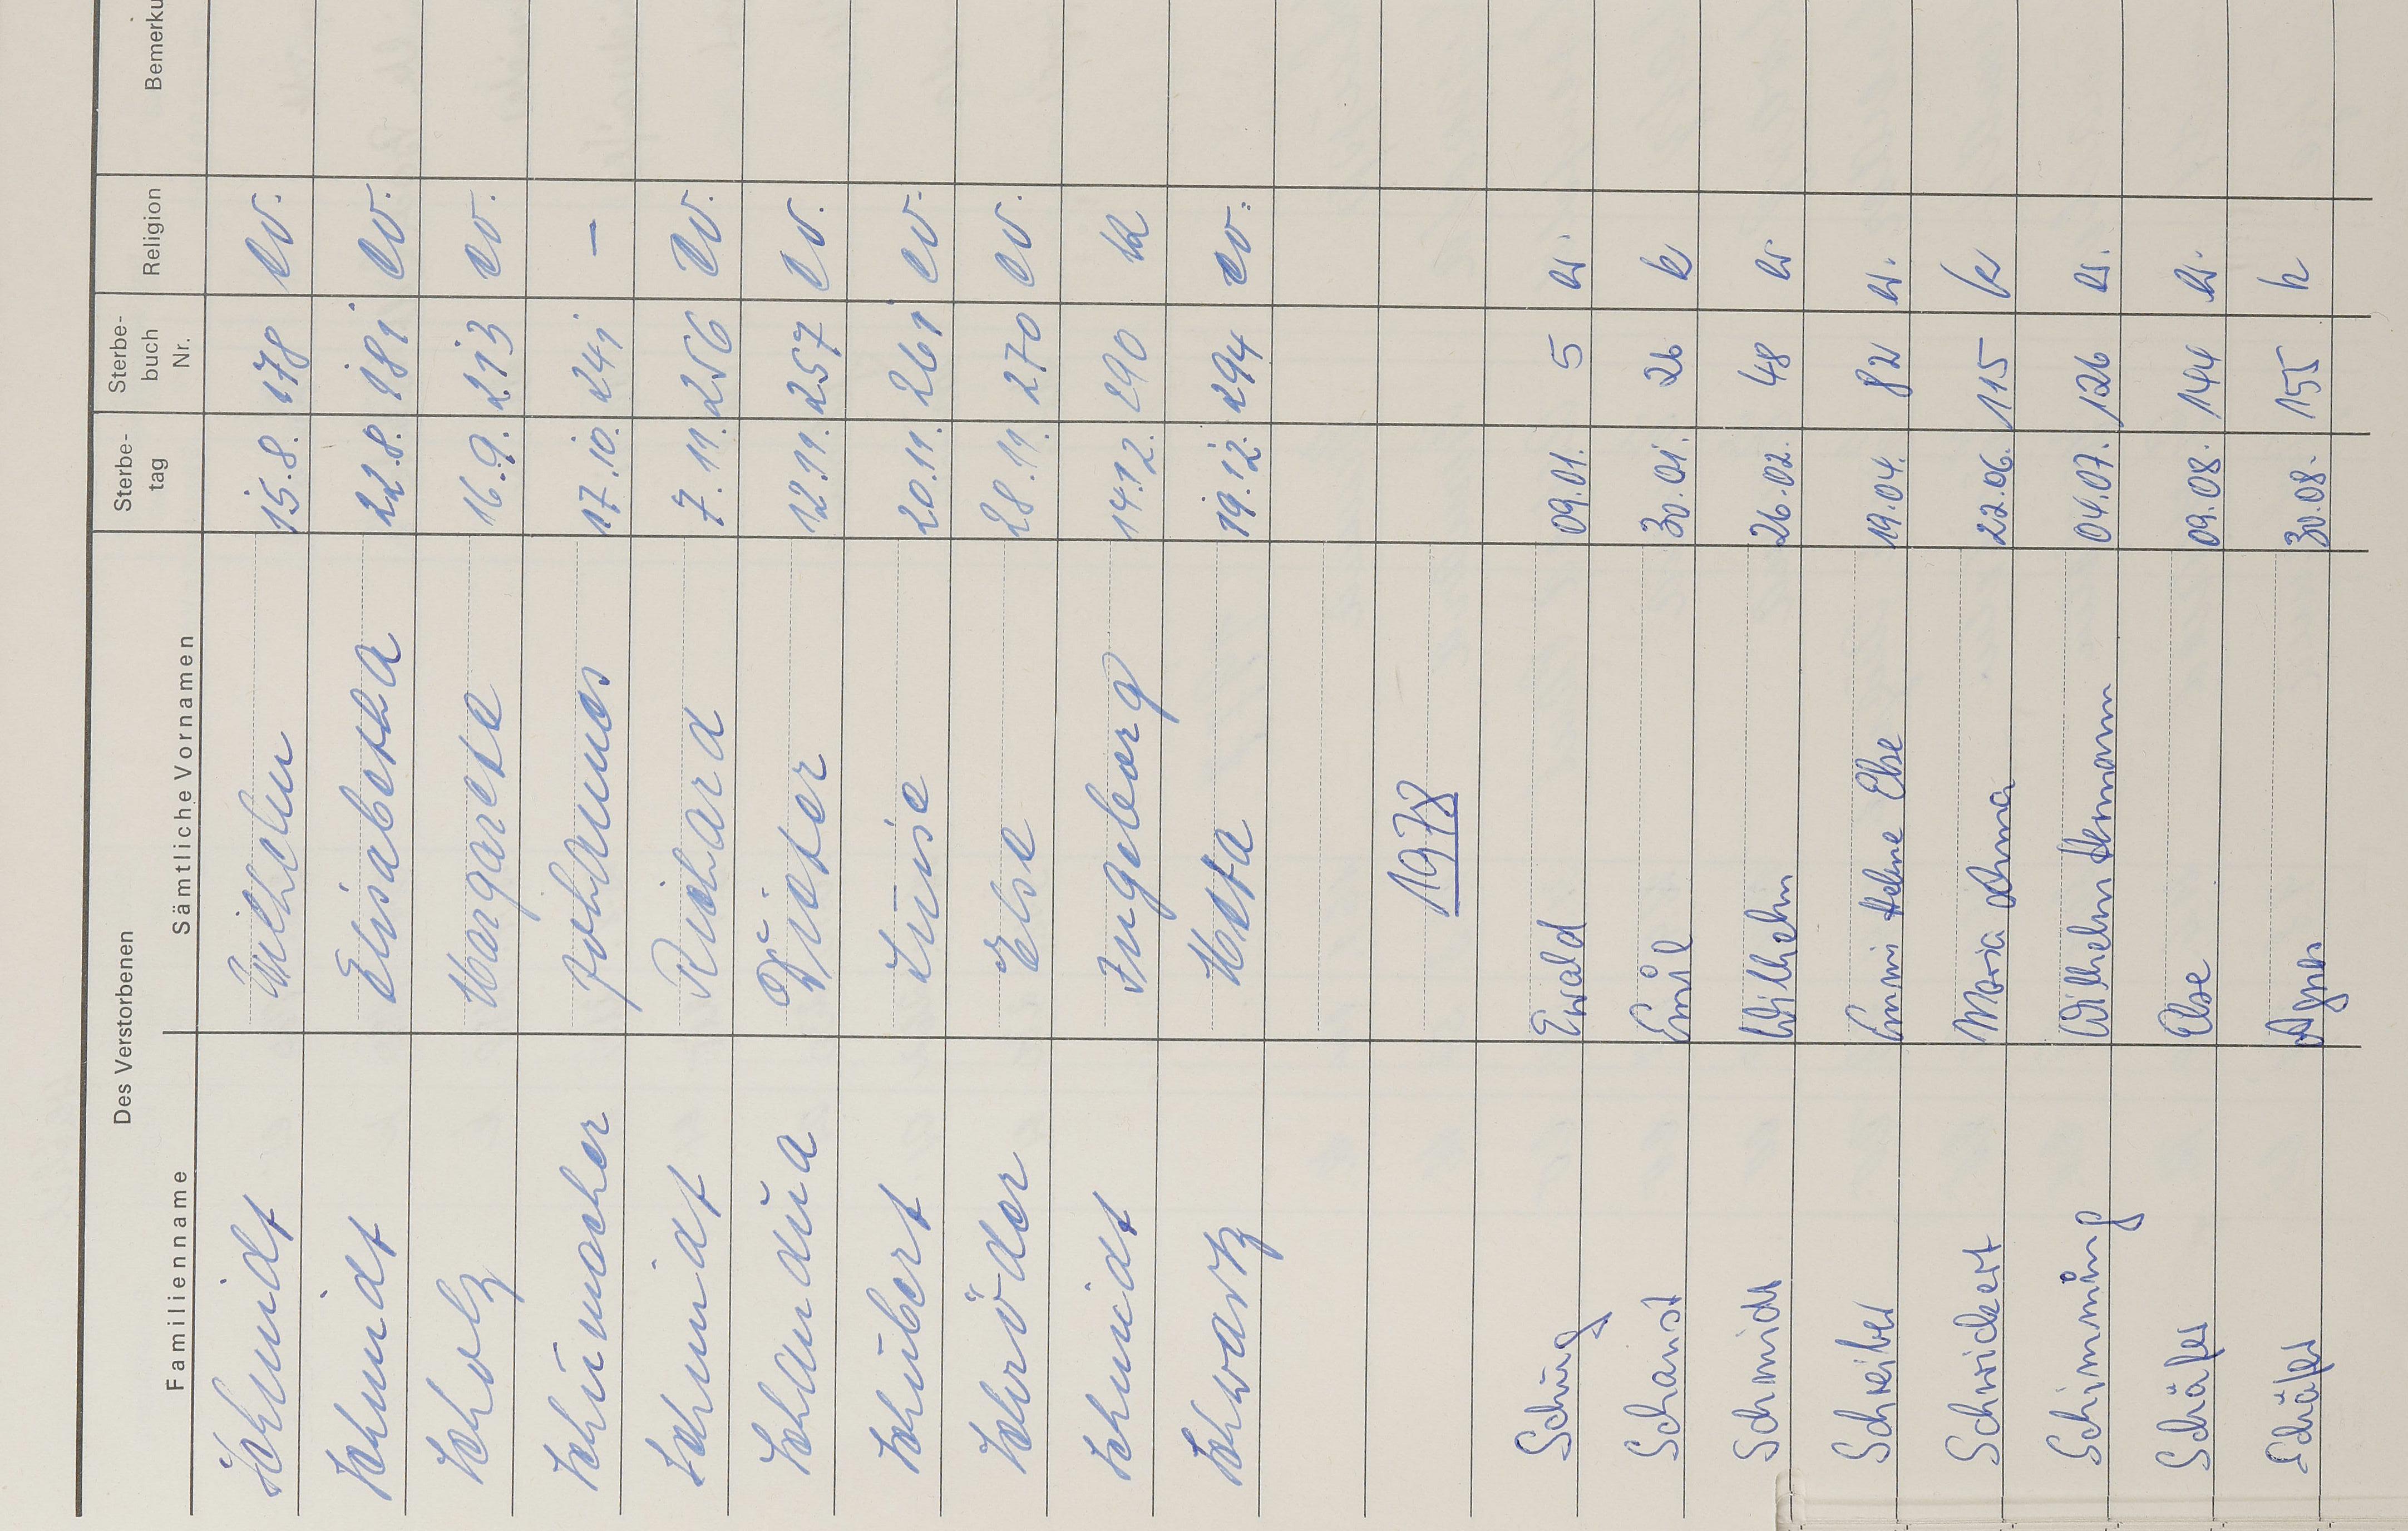 Des Verstorbenen
Familienname Sämtliche Vornamen Sterbe-tag Sterbe-buch Nr. Religion Bemerku
Schmidt Wilhelm 15.8. 178 ev.
Schmidt Elisabetha 22.8. 181 ev.
Scholz Margarete 16.9. 213 ev.
Schumacher Johannes 17.10. 241 –
Schmidt Richard 7.11. 256 ev.
Schlaudia Dieter 12.11. 257 ev.
Schubert Luise 20.11. 261 ev.
Schröder Else 28.11. 270 ev.
Schmidt Ingeborg 14.12. 290 k
Schwartz Meta 19.12. 294 ev.
1978
Schug Ewald 09.01. 5 ev.
Schaust Emil 30.01. 26 k
Schmidt Wilhelm 26.02. 48 ev.
Schreiber Emmi Helene Else 19.04. 82 ev.
Schwickert Maria Anna 22.06. 115 k
Schimming Wilhelm Hermann 04.07. 126 ev.
Schäfer Else 09.08. 144 ev.
Schäfer Agnes 30.08. 155 k